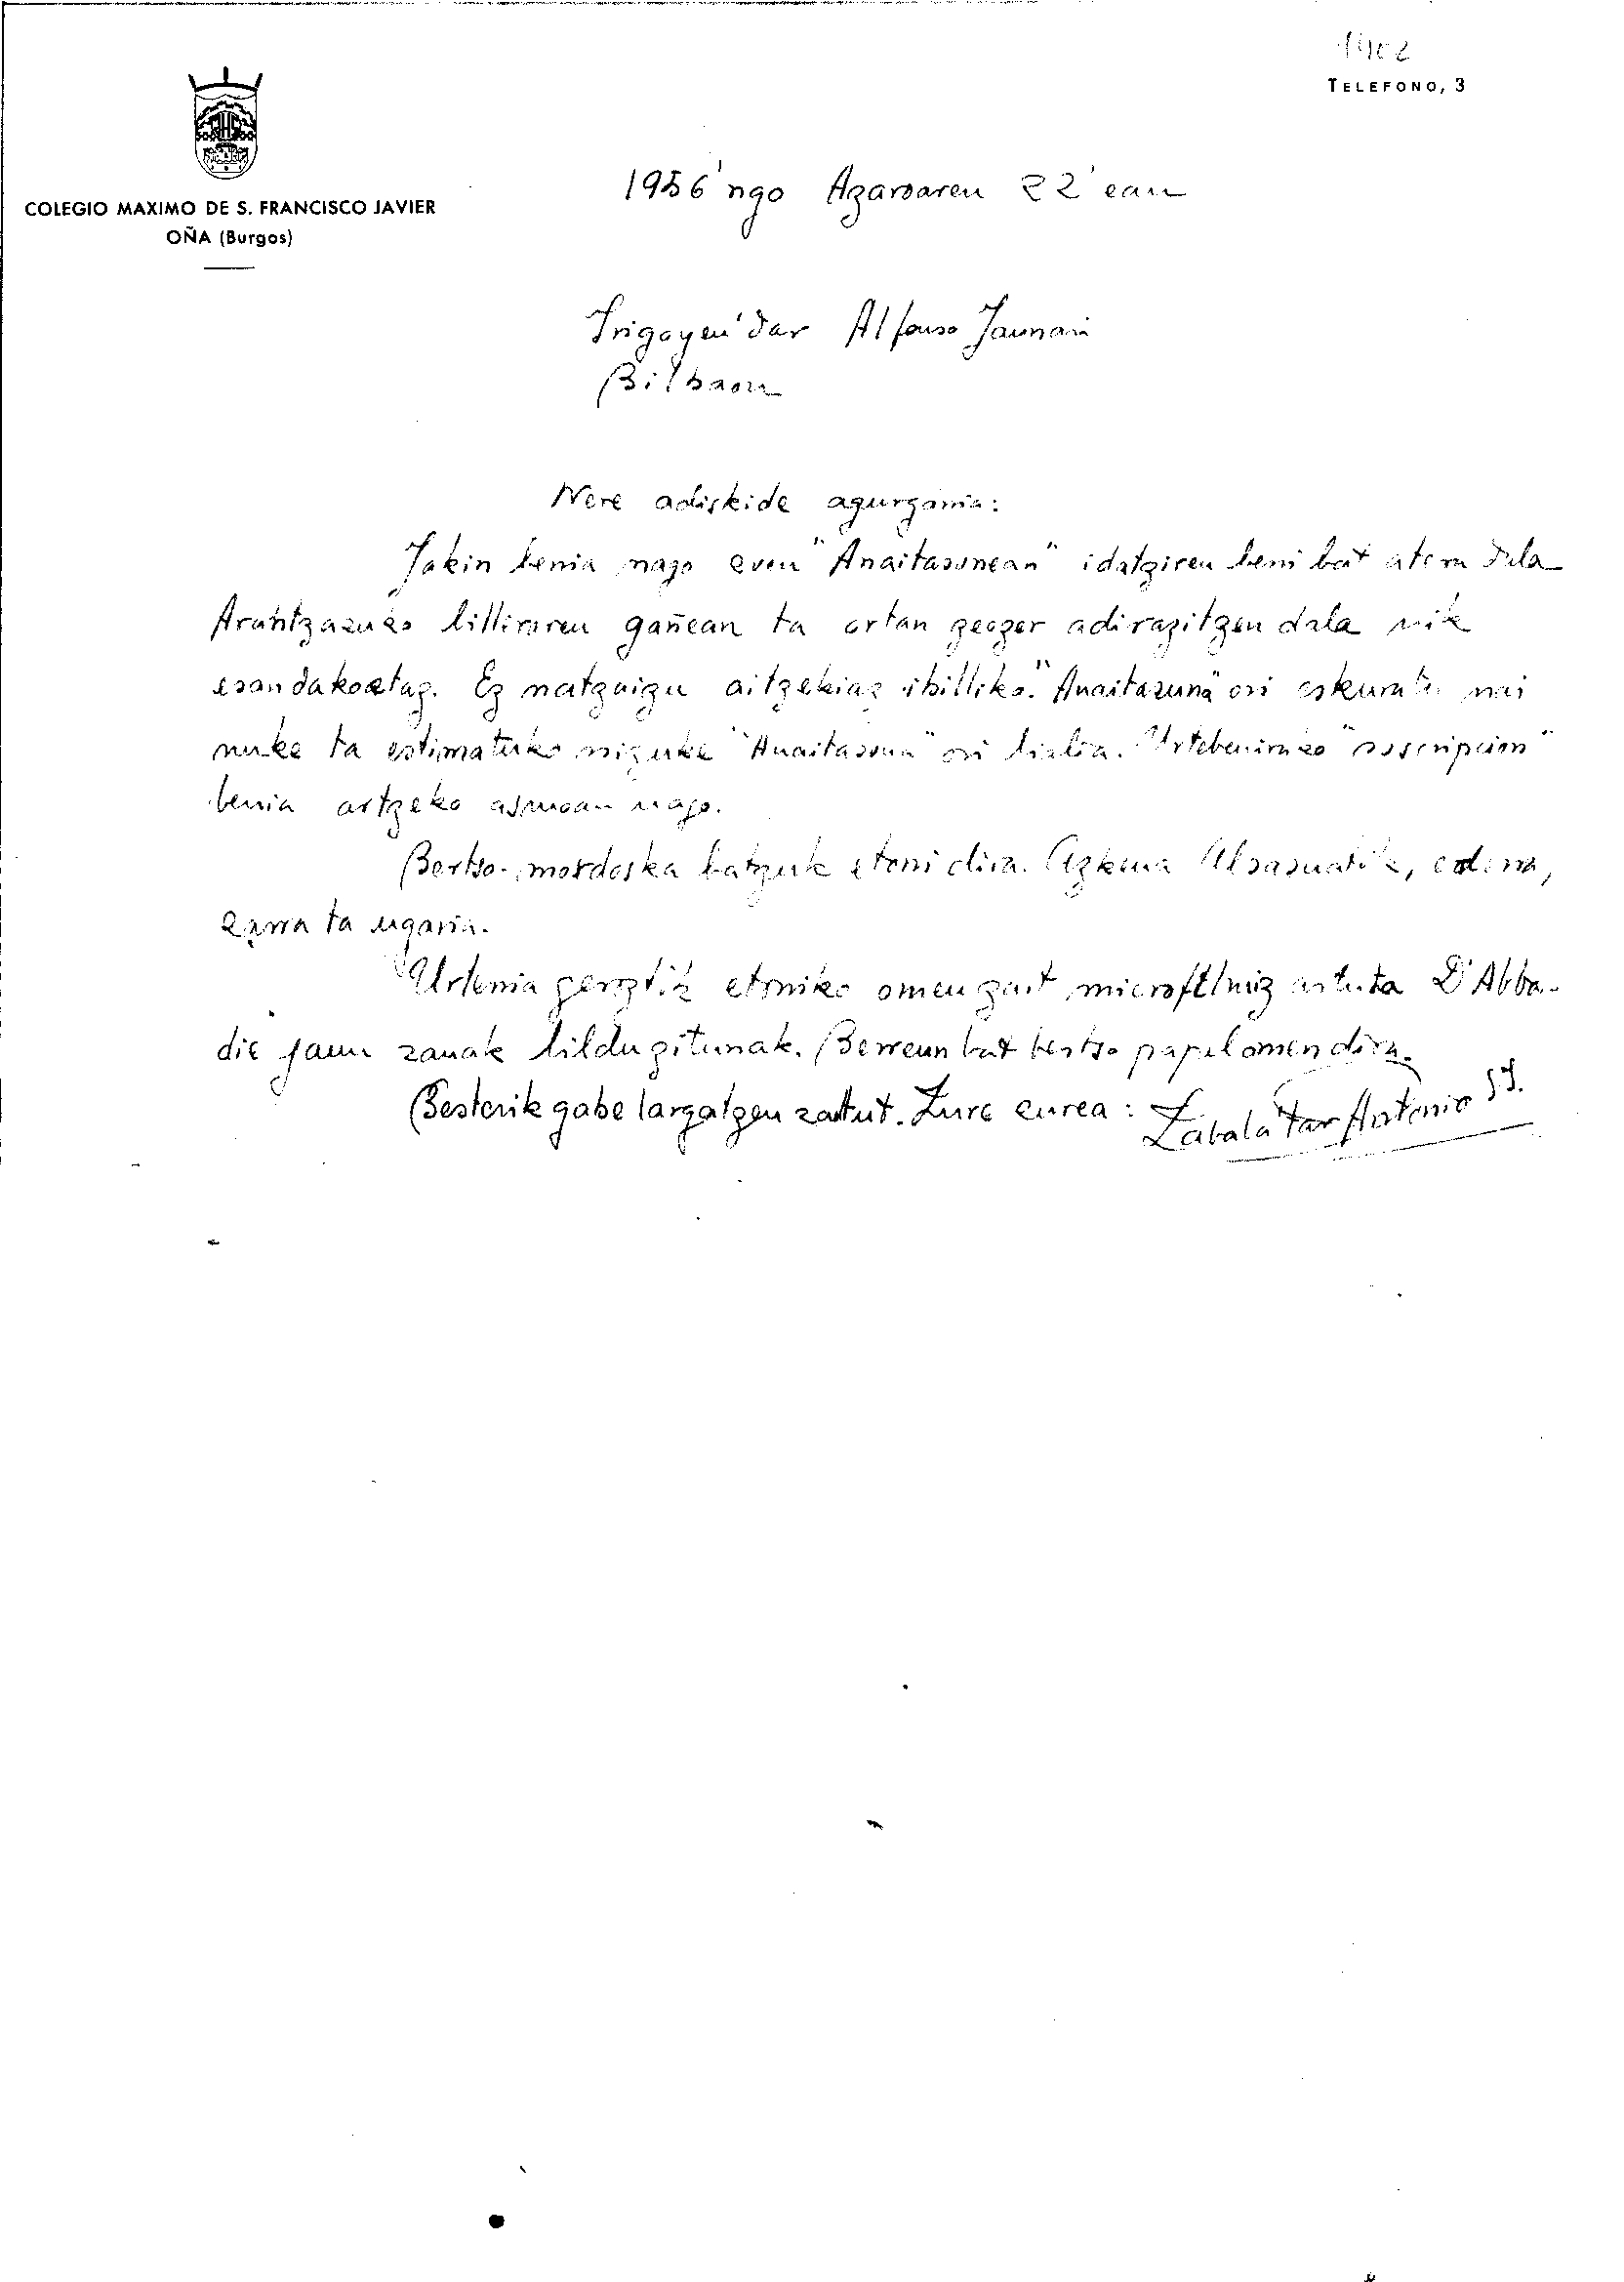 TELEFONO, 3
COLEGIO MAXIMO DE S. FRANCISCO JAVIER
OÑA (Burgos)
1956'ngo Azaroaren 22'ean
Irigoyen'dar Alfonso Jaunari
Bilbaora
Nere adiskide agurgarria:
Jakin berria nago "Anaitasunean" idazti berri bat atera dala
Arantzazuko billeraren gañean ta ortan zeozer adirazitzen dala nik
esandakoetaz. Ez natzaizu aitzekiaz ibilliko. "Anaitasuna" ori eskuratu nai
nuke ta estimatuko nizuke "Anaitasuna" ori bialtzea. Urteberrirako "suscripcion"
berria artzeko asmoan nago.
Bertso-mordoska batzuk etorri dira. Azkena Altsasuatik, ederra,
zarra ta ugaria.
Urteberria geroztik etorriko omen zait microfilmiz artuta D'Abba-
die jaun zanak bildu zitunak. Berreun bat bertso papel omen dira.
Besterik gabe largatzen zaitut. Zure eurea: Zabala'tar Antonio S.J.